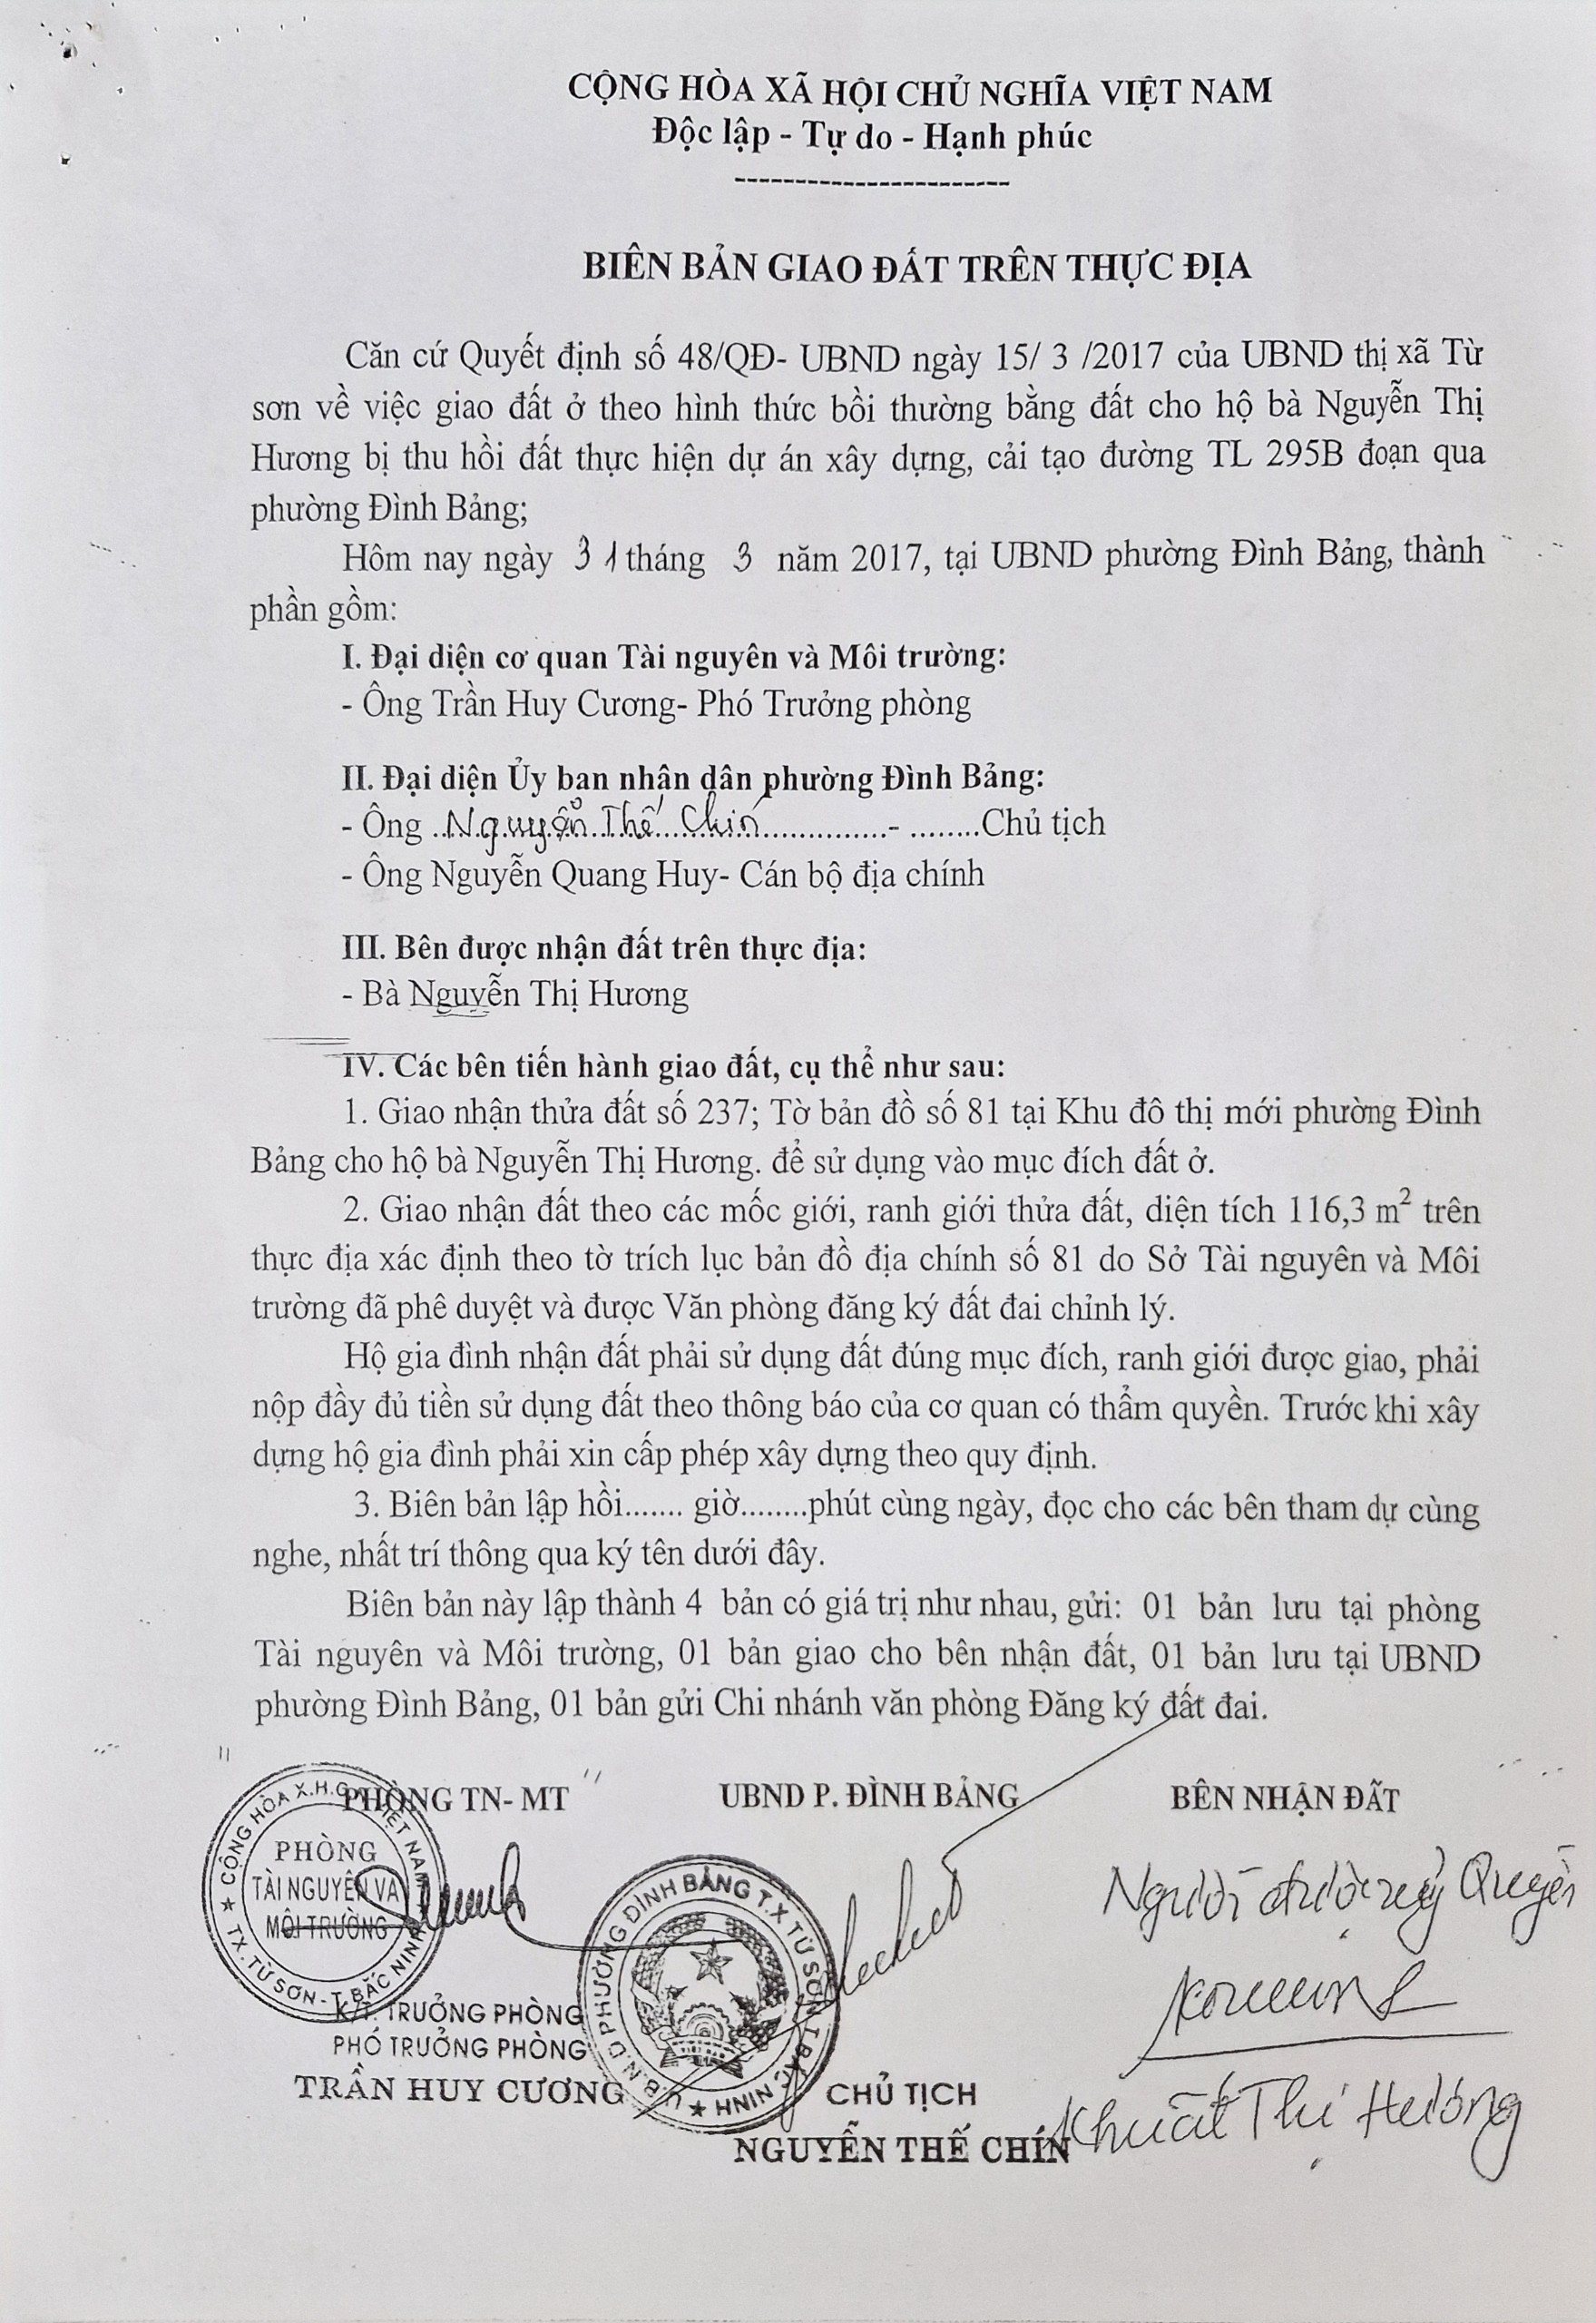 CỘNG HÒA XÃ HỘI CHỦ NGHĨA VIỆT NAM
Độc lập - Tự do - Hạnh phúc
-----------------------
BIÊN BẢN GIAO ĐẤT TRÊN THỰC ĐỊA
Căn cứ Quyết định số 48/QĐ- UBND ngày 15/ 3 /2017 của UBND thị xã Từ
sơn về việc giao đất ở theo hình thức bồi thường bằng đất cho hộ bà Nguyễn Thị
Hương bị thu hồi đất thực hiện dự án xây dựng, cải tạo đường TL 295B đoạn qua
phường Đình Bảng;
Hôm nay ngày 31 tháng 3 năm 2017, tại UBND phường Đình Bảng, thành
phần gồm:
I. Đại diện cơ quan Tài nguyên và Môi trường:
- Ông Trần Huy Cương- Phó Trưởng phòng
II. Đại diện Ủy ban nhân dân phường Đình Bảng:
- Ông ..Nguyễn Thế Chín................- ........Chủ tịch
- Ông Nguyễn Quang Huy- Cán bộ địa chính
III. Bên được nhận đất trên thực địa:
- Bà Nguyễn Thị Hương
IV. Các bên tiến hành giao đất, cụ thể như sau:
1. Giao nhận thửa đất số 237; Tờ bản đồ số 81 tại Khu đô thị mới phường Đình
Bảng cho hộ bà Nguyễn Thị Hương. để sử dụng vào mục đích đất ở.
2. Giao nhận đất theo các mốc giới, ranh giới thửa đất, diện tích 116,3 m² trên
thực địa xác định theo tờ trích lục bản đồ địa chính số 81 do Sở Tài nguyên và Môi
trường đã phê duyệt và được Văn phòng đăng ký đất đai chỉnh lý.
Hộ gia đình nhận đất phải sử dụng đất đúng mục đích, ranh giới được giao, phải
nộp đầy đủ tiền sử dụng đất theo thông báo của cơ quan có thẩm quyền. Trước khi xây
dựng hộ gia đình phải xin cấp phép xây dựng theo quy định.
3. Biên bản lập hồi....... giờ........phút cùng ngày, đọc cho các bên tham dự cùng
nghe, nhất trí thông qua ký tên dưới đây.
Biên bản này lập thành 4 bản có giá trị như nhau, gửi: 01 bản lưu tại phòng
Tài nguyên và Môi trường, 01 bản giao cho bên nhận đất, 01 bản lưu tại UBND
phường Đình Bảng, 01 bản gửi Chi nhánh văn phòng Đăng ký đất đai.
PHÒNG TN- MT UBND P. ĐÌNH BẢNG BÊN NHẬN ĐẤT
CỘNG HÒA X.H.C.N VIỆT NAM
PHÒNG
TÀI NGUYÊN VÀ
MÔI TRƯỜNG
★ TX.TỪ SƠN - T.BẮC NINH ★
U.B.N.D PHƯỜNG ĐÌNH BẢNG T.X TỪ SƠN T.BẮC NINH ★
Người được uỷ Quyền
K/T. TRƯỞNG PHÒNG
PHÓ TRƯỞNG PHÒNG
TRẦN HUY CƯƠNG
CHỦ TỊCH
NGUYỄN THẾ CHÍN
Khuất Thị Hương